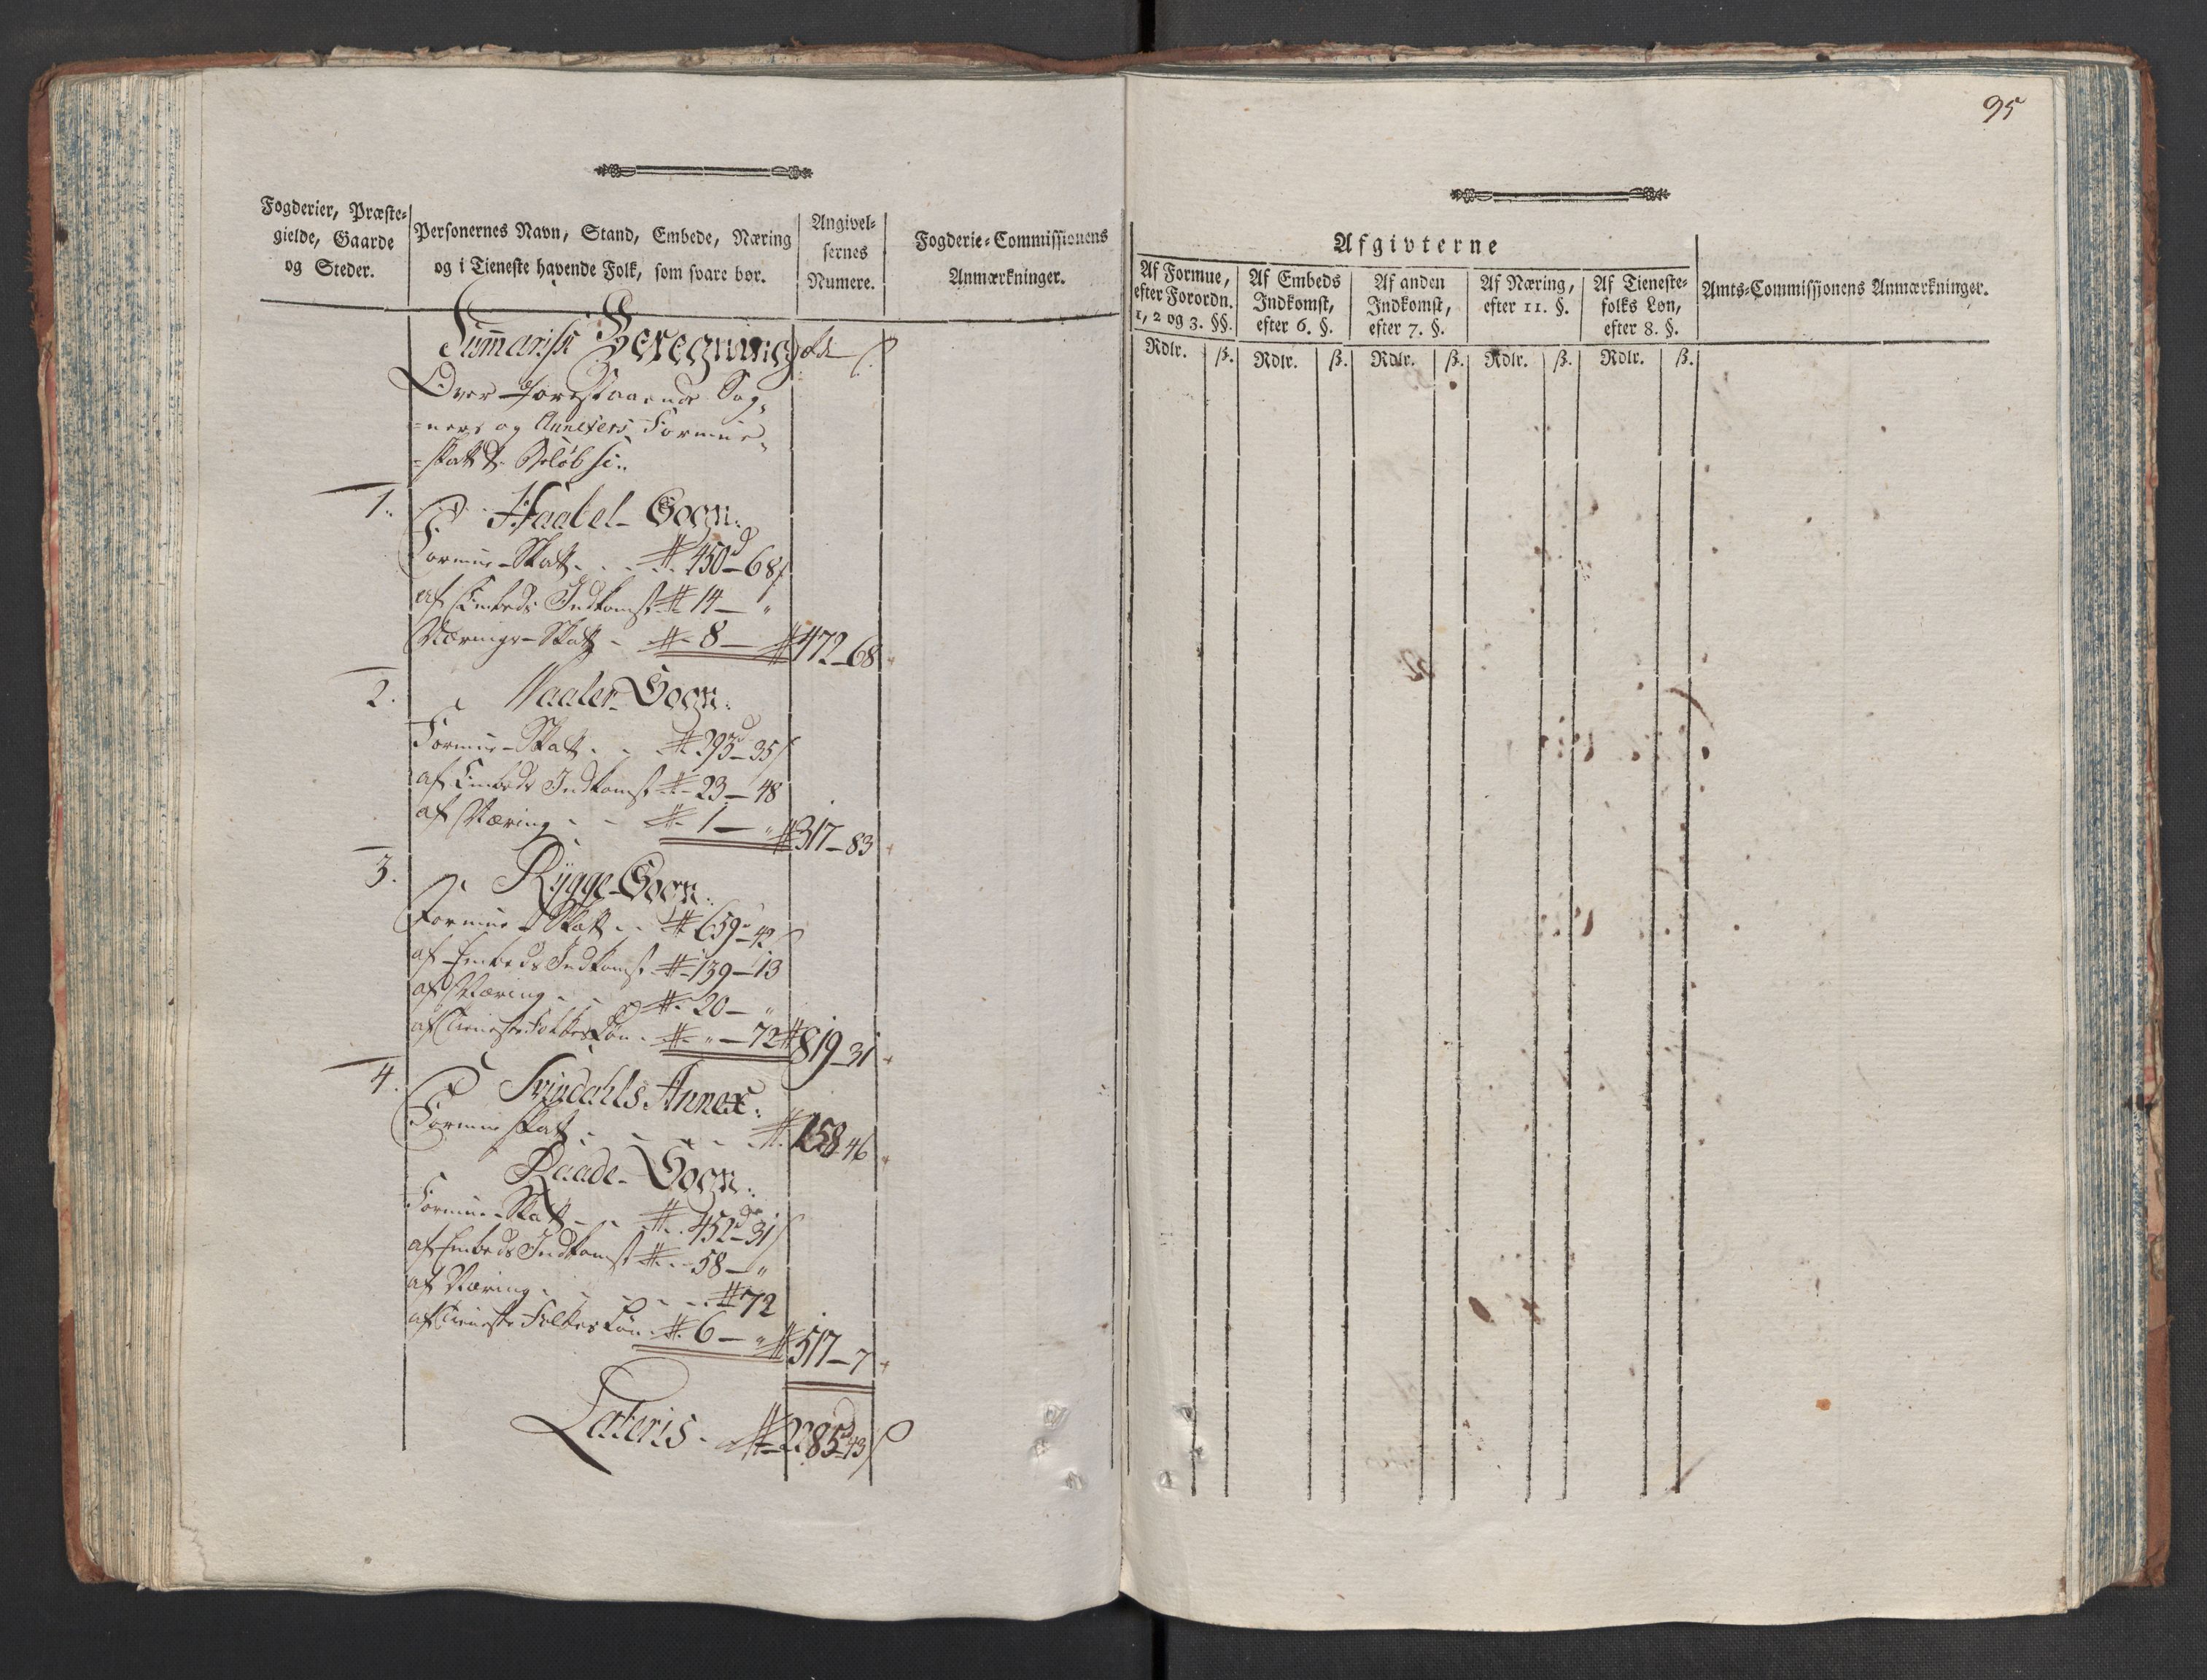 95
Fogderier, Præste-
gielde, Gaarde
og Steder.
Personernes Navn, Stand, Embede, Næring
og i Tieneste havende Folk, som svare bør.
Angivel-
sernes
Numere.
Fogderie-Commissionens
Anmærkninger.
Summarisk Beregning
Over forestaaende Sog-
-ners og Annexers Formue-
-skatts Beløb
1. Haabel Sogn.
Formue-Skatt - - # 450d - 68ß
af Embeds Indkomst # 14 - "
Nærings-Skatt - # 8 - # 472 - 68
2. Vaaler Sogn.
Formue-Skatt - - # 293d - 35ß
af Embeds Indkomst # 23 - 48
af Næring - - # 1 - " # 317 - 83
3. Rygge Sogn.
Formue Skatt - - # 659 - 42ß
af Embeds Indkomst # 139 - 13
af Næring - - # 20 - "
af Tieneste Folkes Løn - # " - 72 # 819 - 31
4. Svindahls Annex.
Formue Skatt - - - - # 158 46
Raade Sogn.
Formue-Skatt - - # 452d - 31ß
af Embeds Indkomst # 58 - "
af Næring - - - - # 72
af Tieneste Folkes Løn # 6 - " # 517 - 7
Lateris - # 2285d 43ß
Afgivterne
Af Formue,
efter Forordn.
1, 2 og 3. §§.
Af Embeds
Indkomst,
efter 6. §.
Af anden
Indkomst,
efter 7. §.
Af Næring,
efter 11. §.
Af Tieneste-
folks Løn,
efter 8. §.
Amts-Commissionens Anmærkninger.
Rdlr. ß. Rdlr. ß. Rdlr. ß. Rdlr. ß. Rdlr. ß.